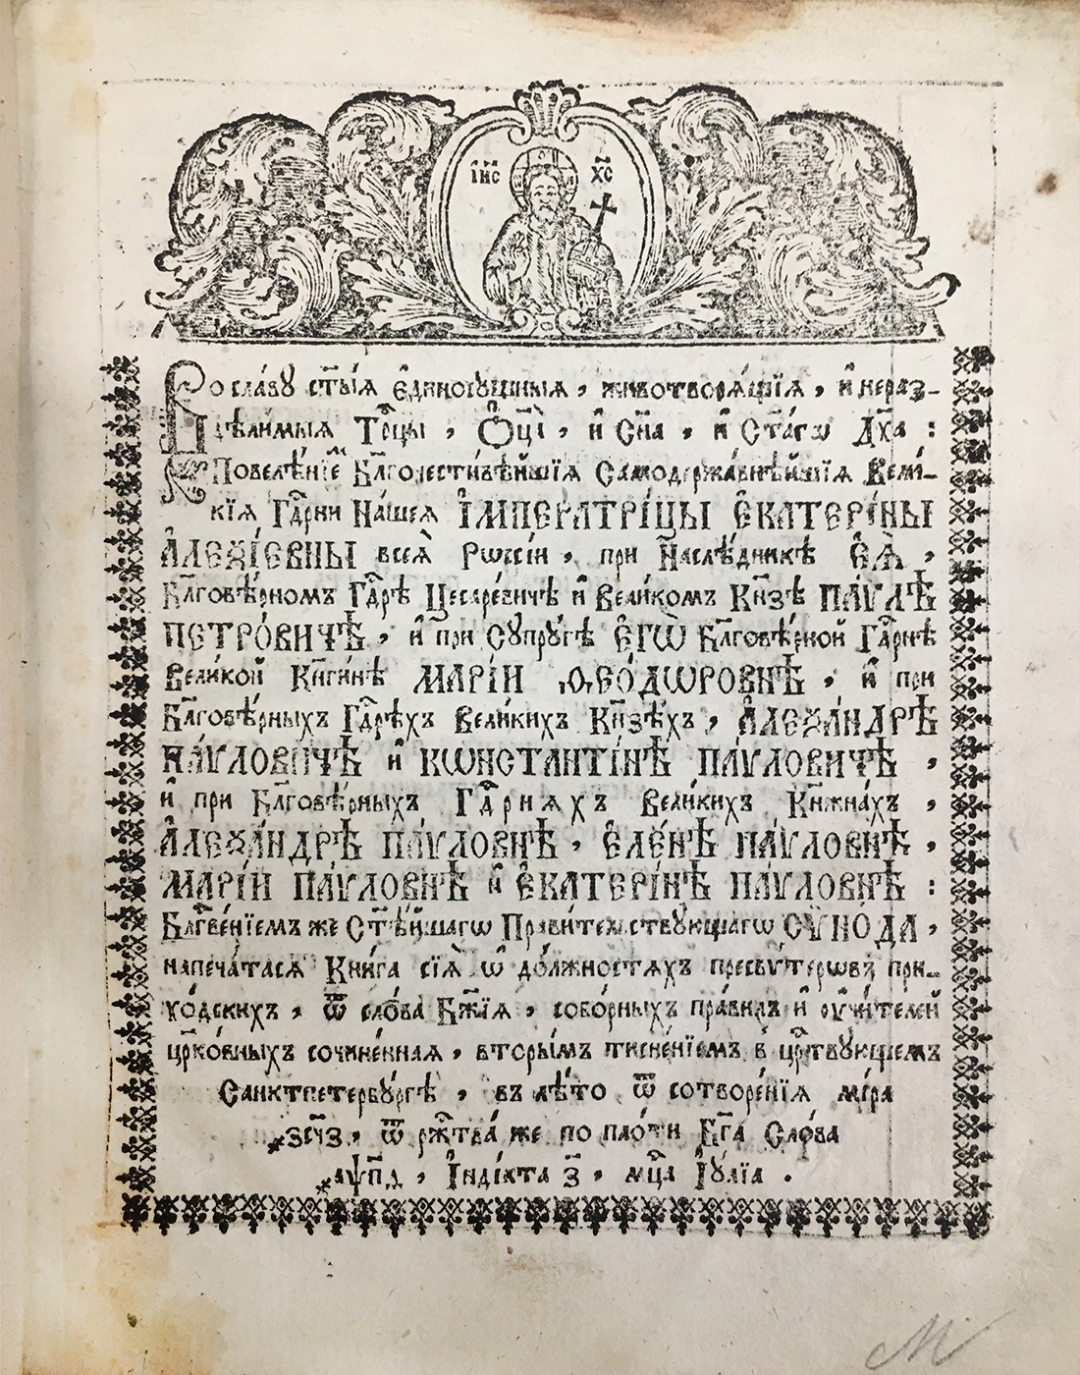 І҆И҃С Х҃С
Во сла́ву ст҃ы́ѧ є҆диносу́щныѧ, животворѧ́щїѧ, и҆ нераз-
дѣли́мыѧ Трⷪ҇цы, Ѻ҆ц҃а̀, и҆ Сн҃а, и҆ Ст҃а́гѡ Дх҃а:
Повелѣ́нїемъ Бл҃гочести́вѣйшїѧ Самодержа́внѣйшїѧ Вели́-
кїѧ Гдⷭ҇рни На́шеѧ І҆МПЕРАТРІ́ЦЫ Є҆КАТЕРІ́НЫ
А҆ЛЕѮІ́ЕВНЫ всеѧ̀ Рѡссі́и, при Наслѣ́дникѣ Є҆Ѧ̀,
Бл҃говѣ́рномъ Гдⷭ҇рѣ Цесаре́вичѣ и҆ вели́комъ Кн҃зѣ ПА́ѴЛѢ
ПЕТРО́ВИЧѢ, и҆ при Супру́гѣ Є҆ГѠ̀ Бл҃говѣ́рной Гдⷭ҇рнѣ
Вели́кой Кн҃ги́нѣ МАРІ́И Ѳ҆ЕО́ДѠРОВНѢ, и҆ при
Бл҃говѣ́рныхъ Гдⷭ҇рѣхъ вели́кихъ Кн҃зѣ́хъ, А҆ЛЕѮА́НДРѢ
ПА́ѴЛОВИЧѢ и҆ КѠНСТАНТІ́НѢ ПА́ѴЛОВИЧѢ,
и҆ при Бл҃говѣ́рныхъ Гдⷭ҇рнѧхъ вели́кихъ Кн҃жна́хъ,
А҆ЛЕѮА́НДРѢ ПА́ѴЛОВНѢ, Є҆ЛЕ́НѢ ПА́ѴЛОВНѢ,
МАРІ́И ПА́ѴЛОВНѢ и҆ Є҆КАТЕРІ́НѢ ПА́ѴЛОВНѢ:
Блгⷭ҇ве́нїемъ же Ст҃ѣ́йшагѡ Прави́тельствующагѡ СѴНО́ДА,
напеча́тасѧ Кни́га сїѧ̀ ѡ҆ до́лжностѧхъ пресвѵ́терѡвъ при-
хо́дскихъ, ѿ сло́ва Бж҃їѧ, собо́рныхъ пра́вилъ и҆ ᲂу҆чи́телей
црⷪ҇ко́вныхъ сочине́ннаѧ, вторы́мъ тисне́нїемъ в црⷭ҇твующемъ
Санктпетербу́ргѣ, въ лѣ́то ѿ сотворе́нїѧ мі́ра
҂зсч҃з, ѿ рⷤ҇тва́ же по пло́ти Бг҃а Сло́ва
҂аѱп҃ѳ, І҆нді́кта з҃, мцⷭ҇а І҆у́лїа.
М